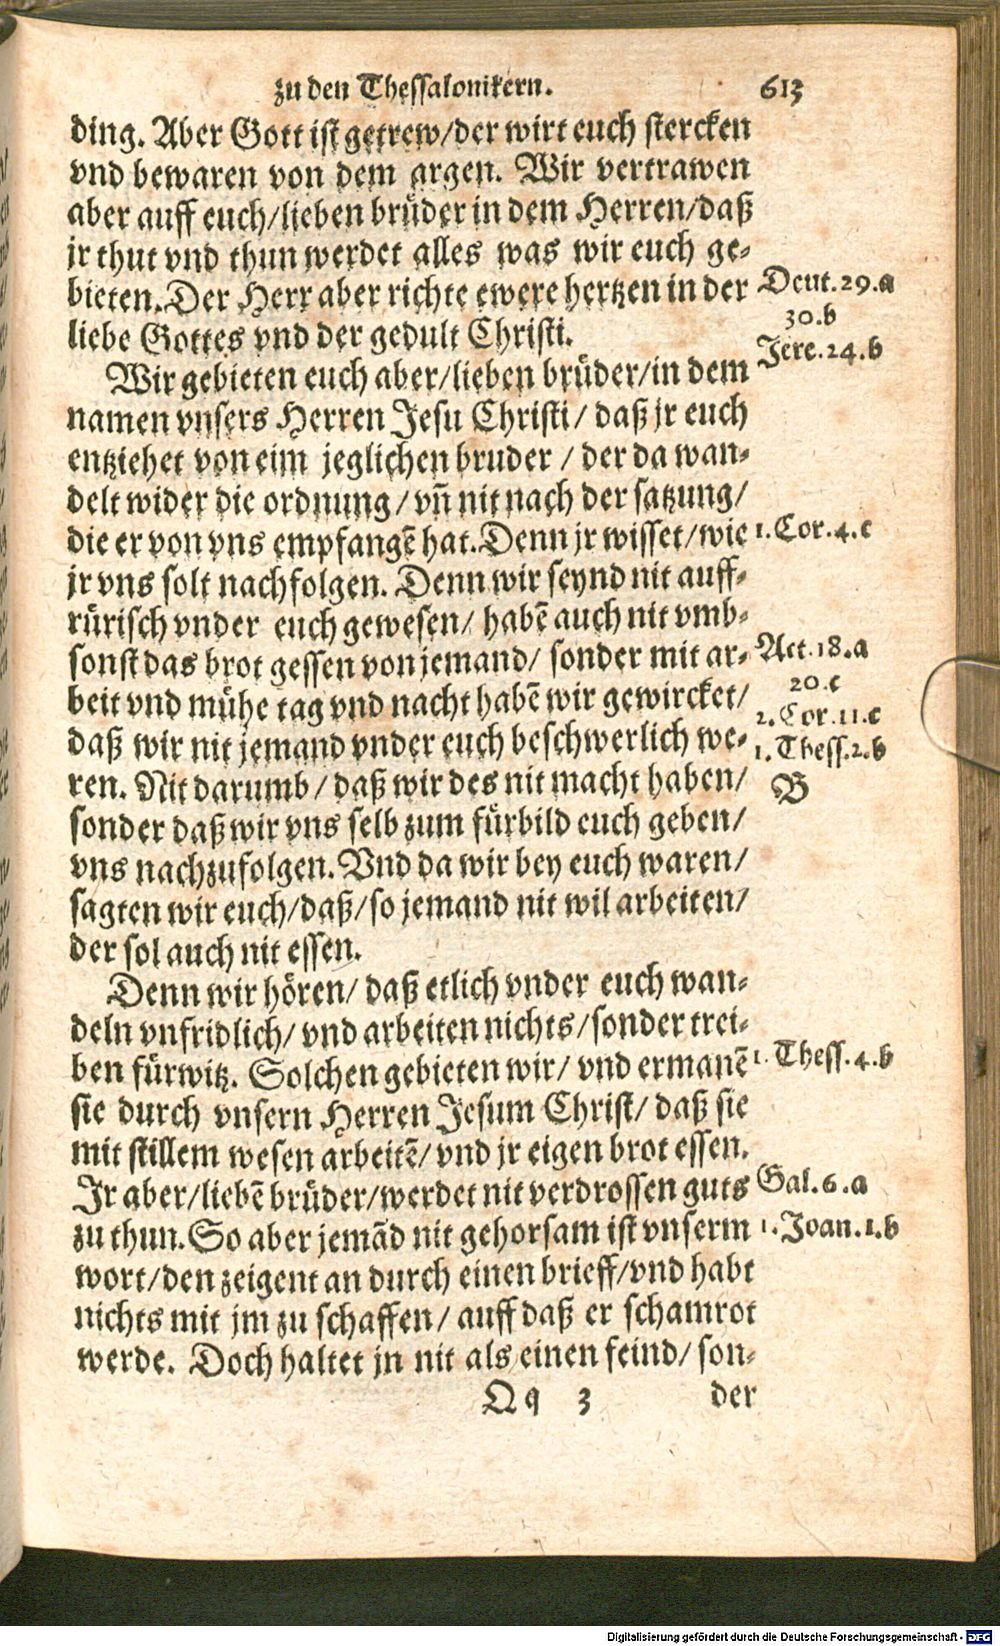 zu den Thessalonikern. 613
ding. Aber Gott ist getrew/der wirt euch stercken
vnd bewaren von dem argen. Wir vertrawen
aber auff euch/lieben brüder in dem Herren/daß
jr thut vnd thun werdet alles was wir euch ge-
bieten. Der Herr aber richte ewere hertzen in der
liebe Gottes vnd der gedult Christi.
Deut. 29.a
30.b
Jere. 24.b
Wir gebieten euch aber/lieben brüder/in dem
namen vnsers Herren Jesu Christi/ daß jr euch
entziehet von eim jeglichen bruder / der da wan-
delt wider die ordnung/ vñ nit nach der satzung/
die er von vns empfangẽ hat. Denn jr wisset/wie
1. Cor. 4. c
jr vns solt nachfolgen. Denn wir seynd nit auff-
rürisch vnder euch gewesen/ habẽ auch nit vmb-
sonst das brot gessen von jemand/ sonder mit ar-
Act. 18.a
beit vnd mühe tag vnd nacht habẽ wir gewircket/
20.c
2. Cor. 11.c
daß wir nit jemand vnder euch beschwerlich we-
1. Thess. 2.b
ren. Nit darumb/ daß wir des nit macht haben/
B
sonder daß wir vns selb zum fürbild euch geben/
vns nachzufolgen. Vnd da wir bey euch waren/
sagten wir euch/daß/so jemand nit wil arbeiten/
der sol auch nit essen.
Denn wir hören/ daß etlich vnder euch wan-
deln vnfridlich/ vnd arbeiten nichts/sonder trei-
ben fürwitz. Solchen gebieten wir/ vnd ermanẽ
1. Thess. 4.b
sie durch vnsern Herren Jesum Christ/ daß sie
mit stillem wesen arbeitẽ/ vnd jr eigen brot essen.
Jr aber/liebẽ brüder/werdet nit verdrossen guts
Gal. 6.a
zu thun. So aber jemãd nit gehorsam ist vnserm
1. Joan. 1.b
wort/den zeigent an durch einen brieff/vnd habt
nichts mit jm zu schaffen/ auff daß er schamrot
werde. Doch haltet jn nit als einen feind/ son-
Qq 3 der
Digitalisierung gefördert durch die Deutsche Forschungsgemeinschaft - DFG